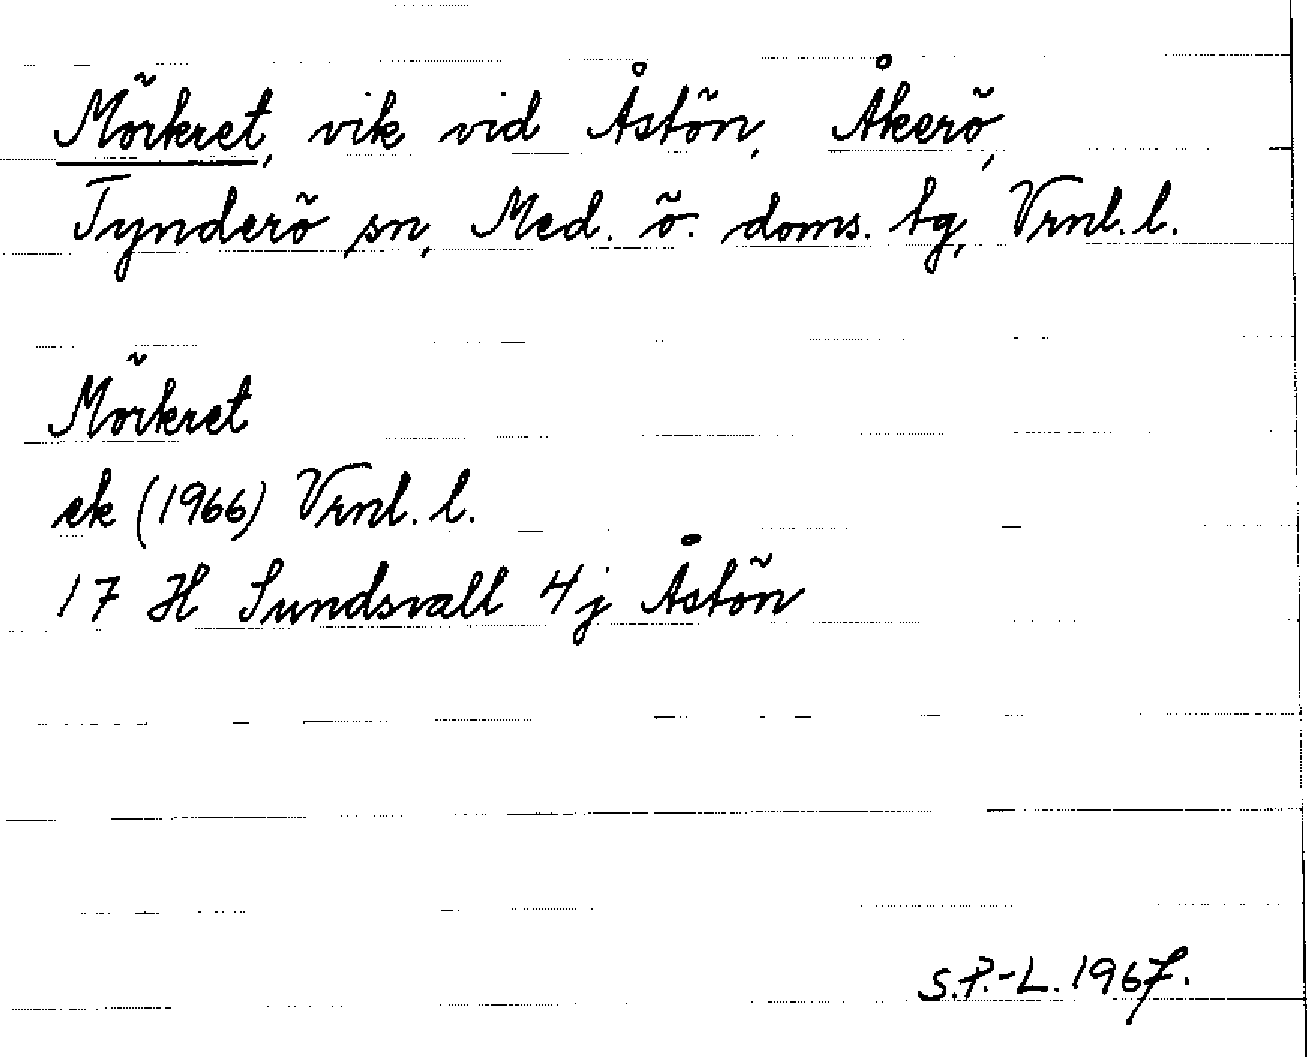 Mörkret, vik vid Åstön, Åkerö,
Tynderö sn, Med. ö. doms. tg, Vrnl. l.
Mörkret
ek (1966) Vrnl. l.
17 H Sundsvall 4j Åstön
S.P.-L. 1967.